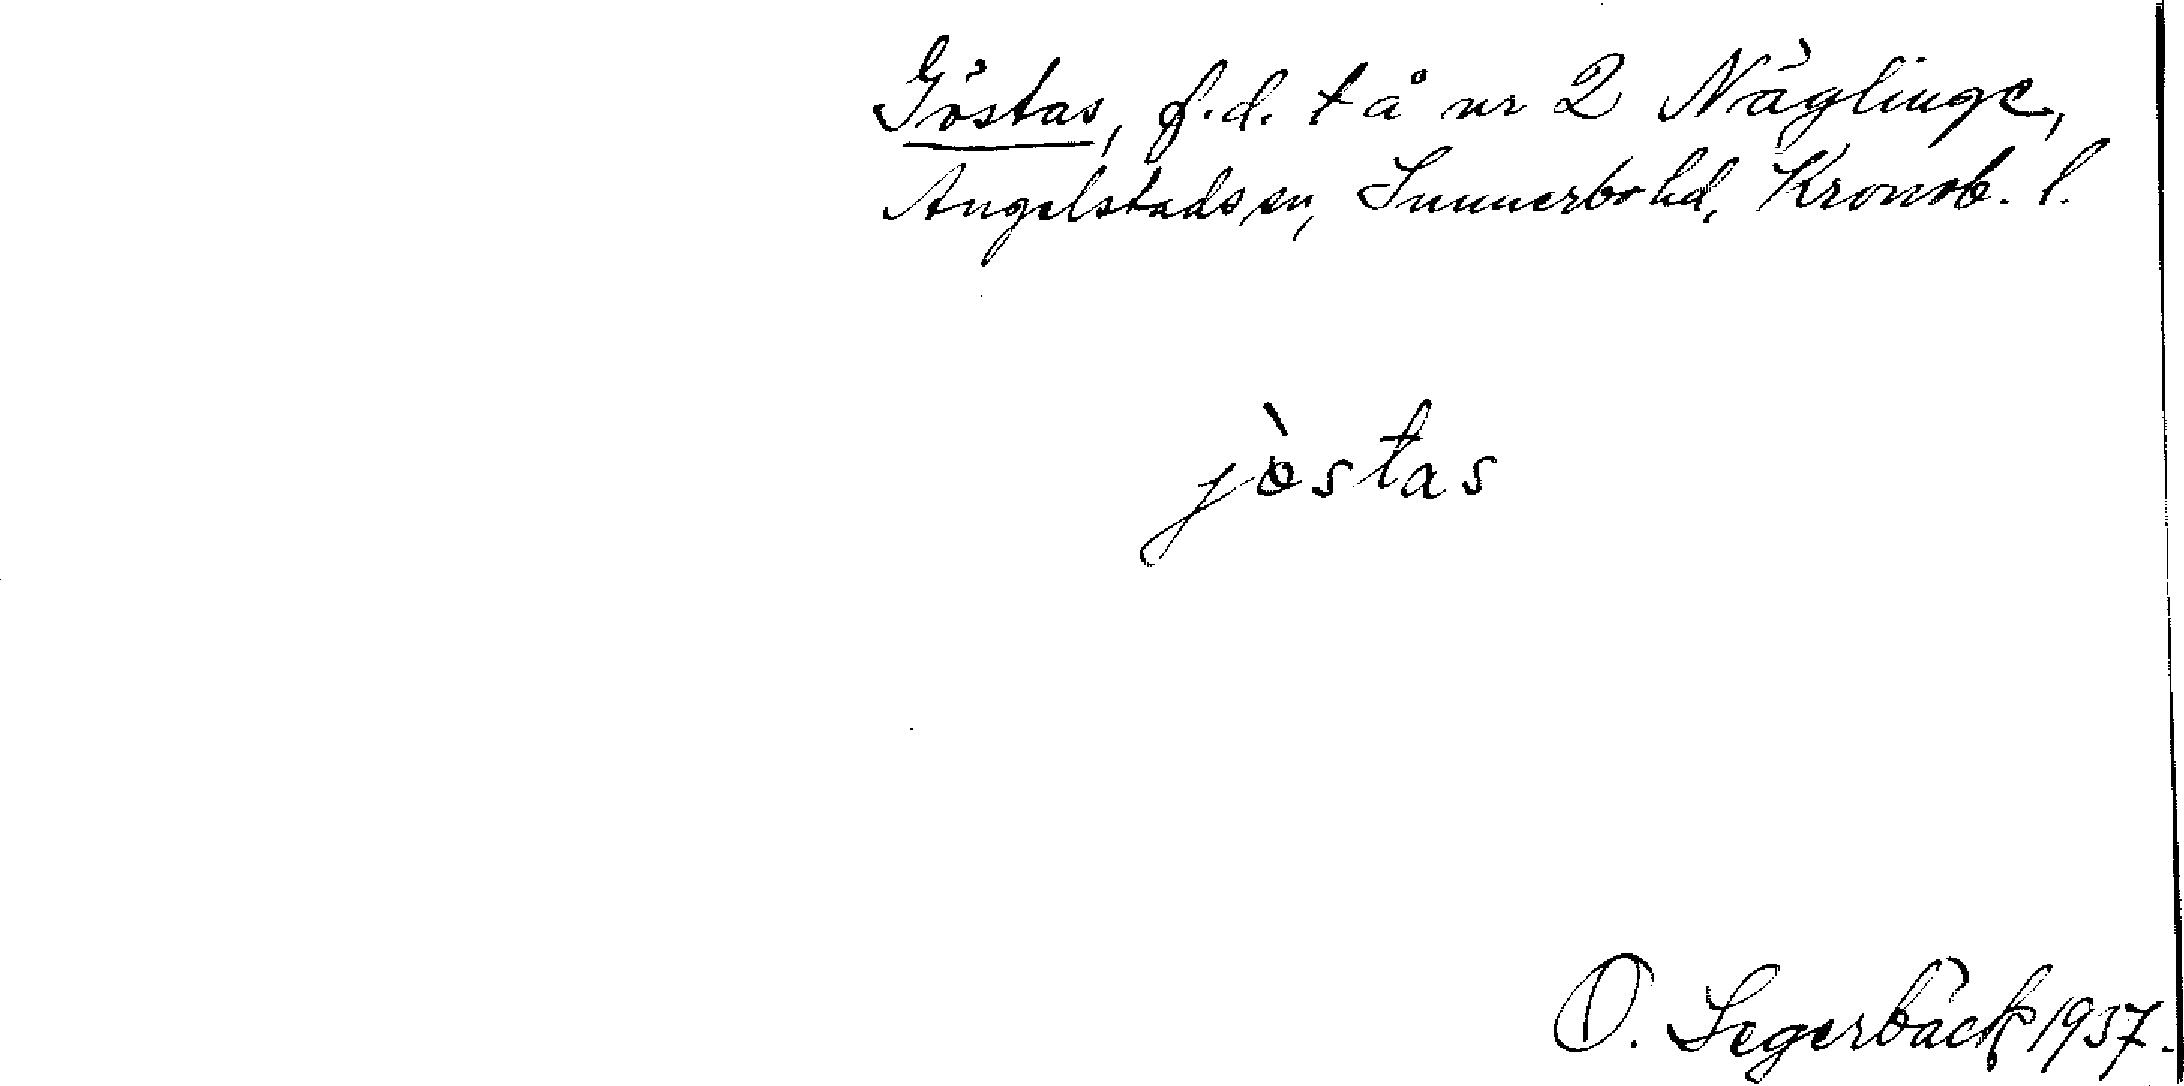 Göstas, f.d. t å nr 2 Näglinge,
Angelstads sn, Sunnerbo hd, Kronob. l.
jòstas
O. Segerbäck 1937.